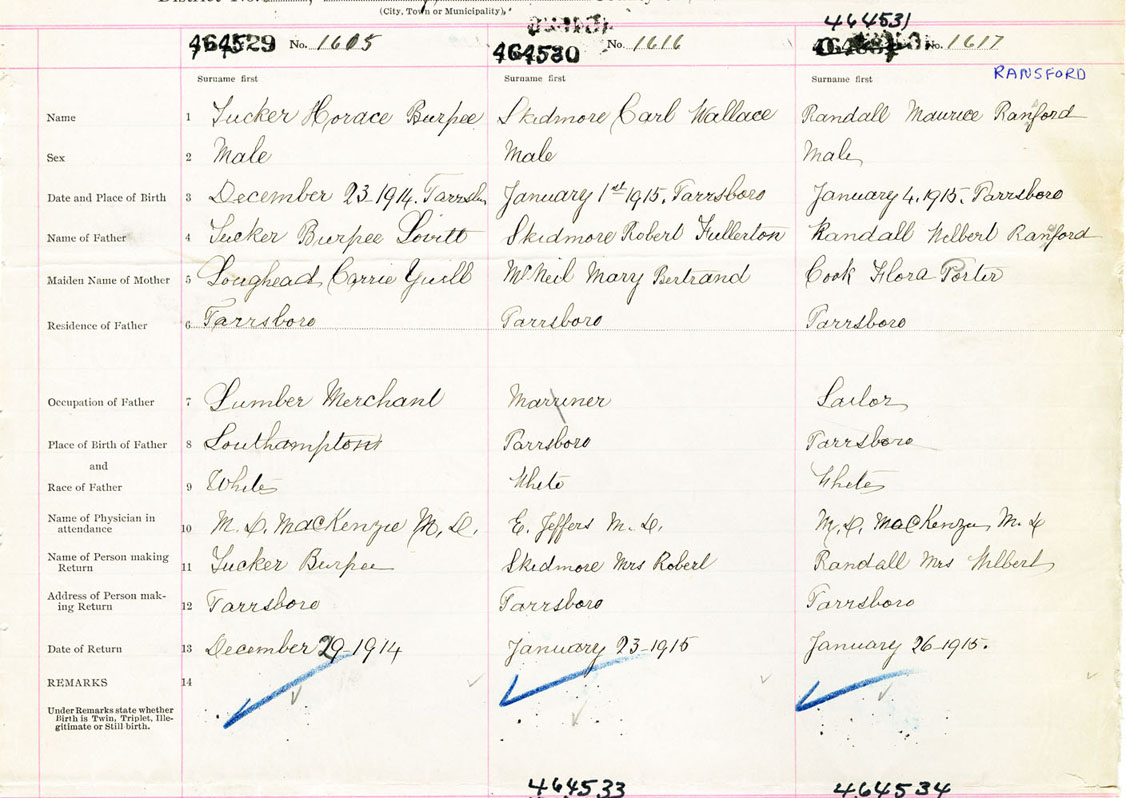 (City, Town or Municipality),
464531
464529 No. 1605
464530 No. 1616
No. 1617
Surname first
Surname first
Surname first
RANSFORD
Name 1 Tucker Horace Burpee
Skidmore Carl Wallace
Randall Maurice Ranford
Sex 2 Male
Male
Male
Date and Place of Birth 3 December 23-1914. Parrsboro
January 1st 1915. Parrsboro
January 4. 1915. Parrsboro
Name of Father 4 Tucker Burpee Lovitt
Skidmore Robert Fullerton
Randall Wilbert Ranford
Maiden Name of Mother 5 Loughead Carrie Yuill
McNeil Mary Bertrand
Cook Flora Porter
Residence of Father 6 Parrsboro
Parrsboro
Parrsboro
Occupation of Father 7 Lumber Merchant
Marriner
Sailor
Place of Birth of Father 8 Southampton
Parrsboro
Parrsboro
and
Race of Father 9 White
White
White
Name of Physician in
attendance 10 M. D. MacKenzie M. D.
E. Jeffers M. D.
M. D. MacKenzie M. D
Name of Person making
Return 11 Tucker Burpee
Skidmore Mrs Robert
Randall Mrs Wilbert
Address of Person mak-
ing Return 12 Parrsboro
Parrsboro
Parrsboro
Date of Return 13 December 29-1914
January 23-1915
January 26-1915.
REMARKS 14
Under Remarks state whether
Birth is Twin, Triplet, Ille-
gitimate or Still birth.
464533
464534